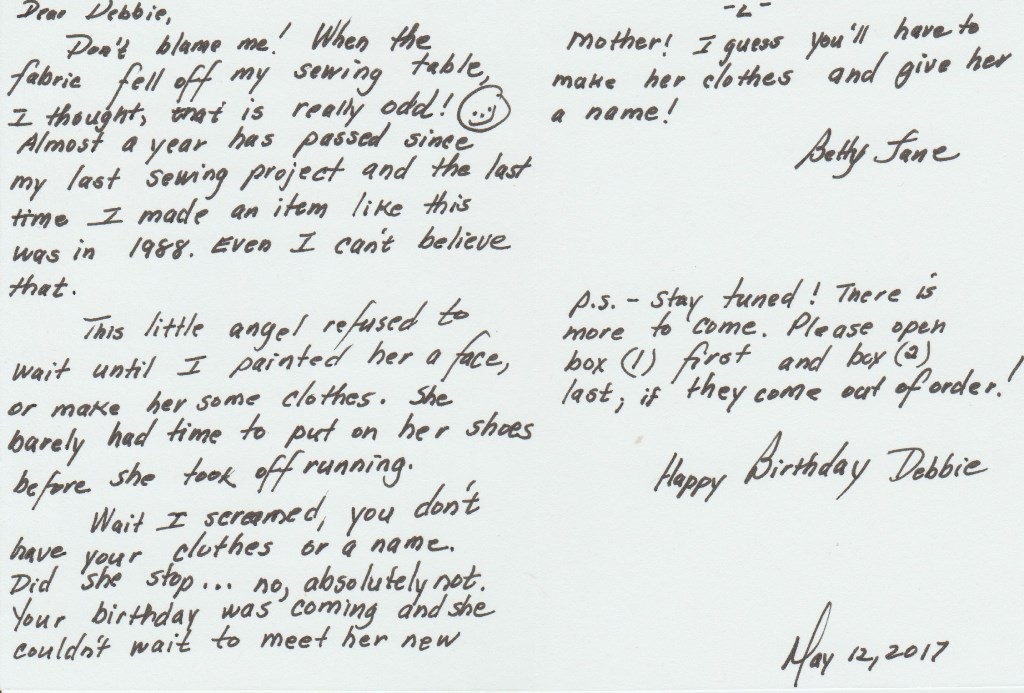 Dear Debbie,
Don't blame me! When the
fabric fell off my sewing table,
I thought, that is really odd!
Almost a year has passed since
my last sewing project and the last
time I made an item like this
was in 1988. Even I can't believe
that.
This little angel refused to
wait until I painted her a face,
or make her some clothes. She
barely had time to put on her shoes
before she took off running.
Wait I screamed, you don't
have your clothes or a name.
Did she stop... no, absolutely not.
Your birthday was coming and she
couldn't wait to meet her new
-2-
Mother! I guess you'll have to
make her clothes and give her
a name!
Betty Jane
p.s. - Stay tuned! There is
more to come. Please open
box (1) first and box (2)
last, if they come out of order!
Happy Birthday Debbie
May 12, 2017